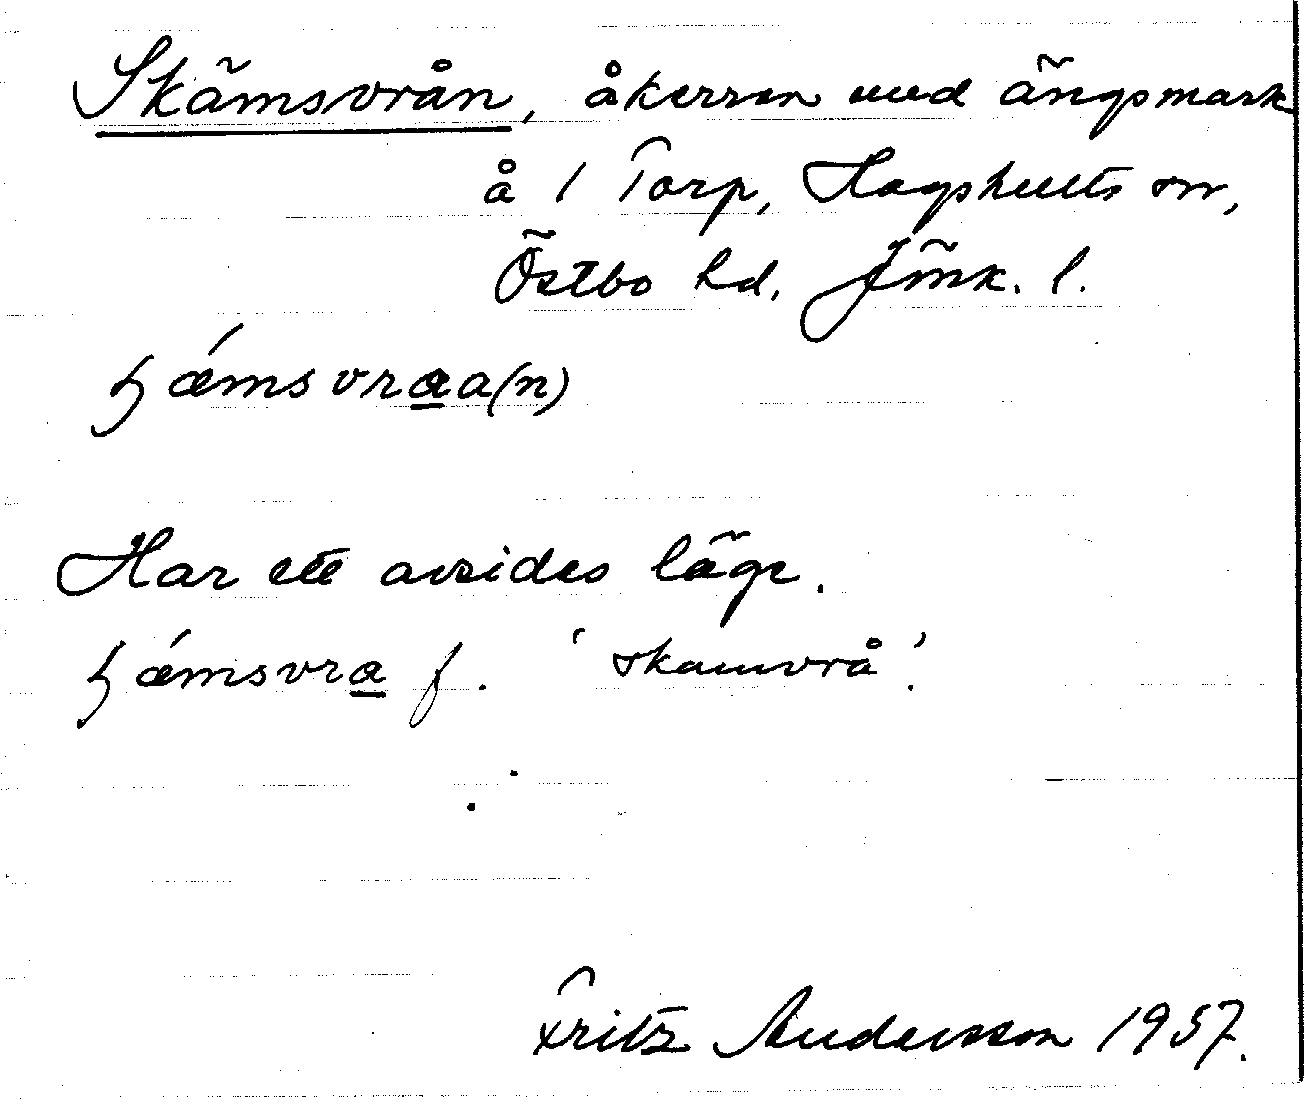 Skämsvrån, åkerren med ängsmark
å 1 Torp, Hagshults sn,
Östbo hd. Jönk. l.
ɧǽmsvraa(n)
Har ett avsides läge.
ɧǽmsvra f. 'skamvrå'.
Fritz Andersson 1957.